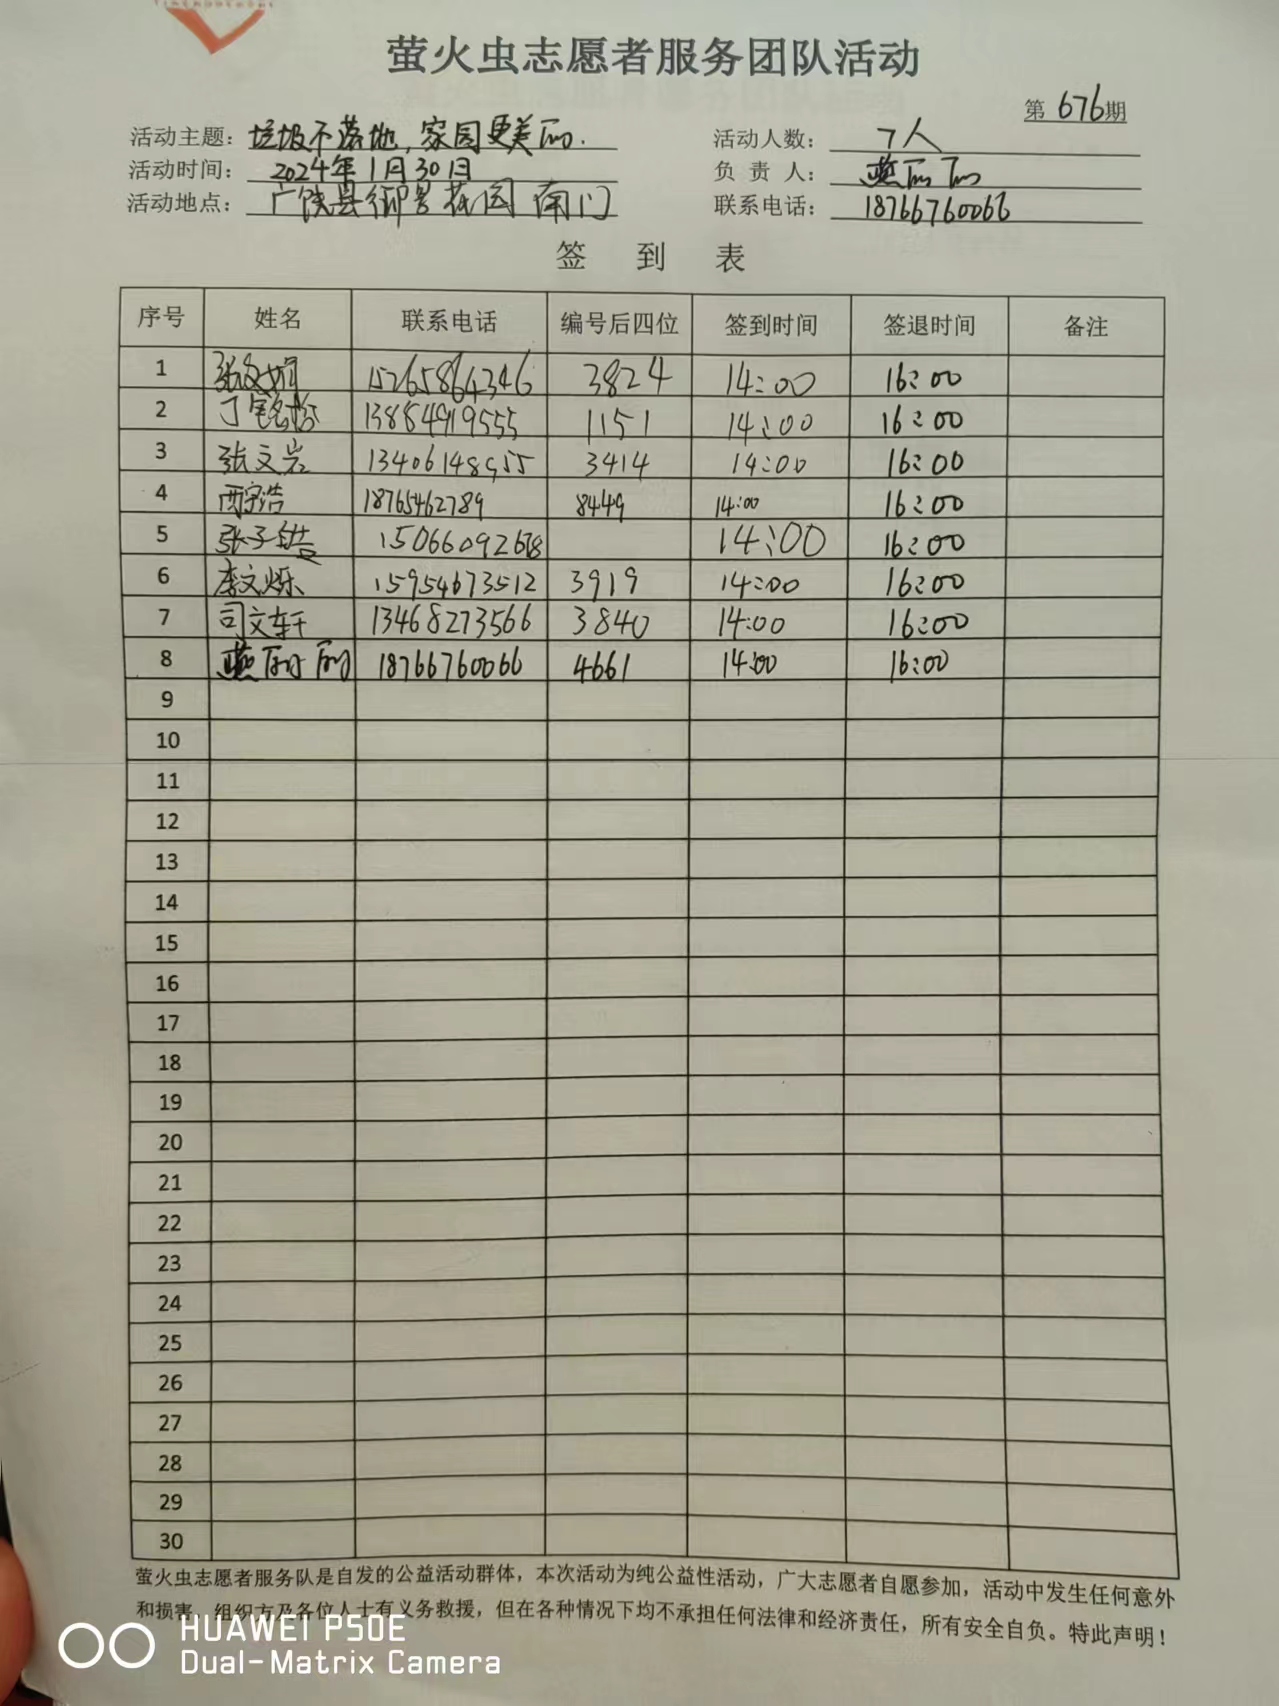 萤火虫志愿者服务团队活动
第 676 期
活动主题: 垃圾不落地,家园更美丽. 活动人数: 7人
活动时间: 2024年1月30日 负 责 人: 燕丽丽
活动地点: 广饶县御景花园南门 联系电话: 18766760066
签 到 表
序号 姓名 联系电话 编号后四位 签到时间 签退时间 备注
1 张文娟 15265864346 3824 14:00 16:00
2 丁 13884919555 1151 14:00 16:00
3 张文岩 13406148955 3414 14:00 16:00
4 宇浩 18765462789 8449 14:00 16:00
5 张子皓 15066092678 14:00 16:00
6 李文烁 15954673512 3919 14:00 16:00
7 司文轩 13468273566 3840 14:00 16:00
8 燕丽丽 18766760066 4661 14:00 16:00
9
10
11
12
13
14
15
16
17
18
19
20
21
22
23
24
25
26
27
28
29
30
萤火虫志愿者服务队是自发的公益活动群体，本次活动为纯公益性活动，广大志愿者自愿参加，活动中发生任何意外
和损害，组织方及各位人士有义务救援，但在各种情况下均不承担任何法律和经济责任，所有安全自负。特此声明！
HUAWEI P50E
Dual-Matrix Camera